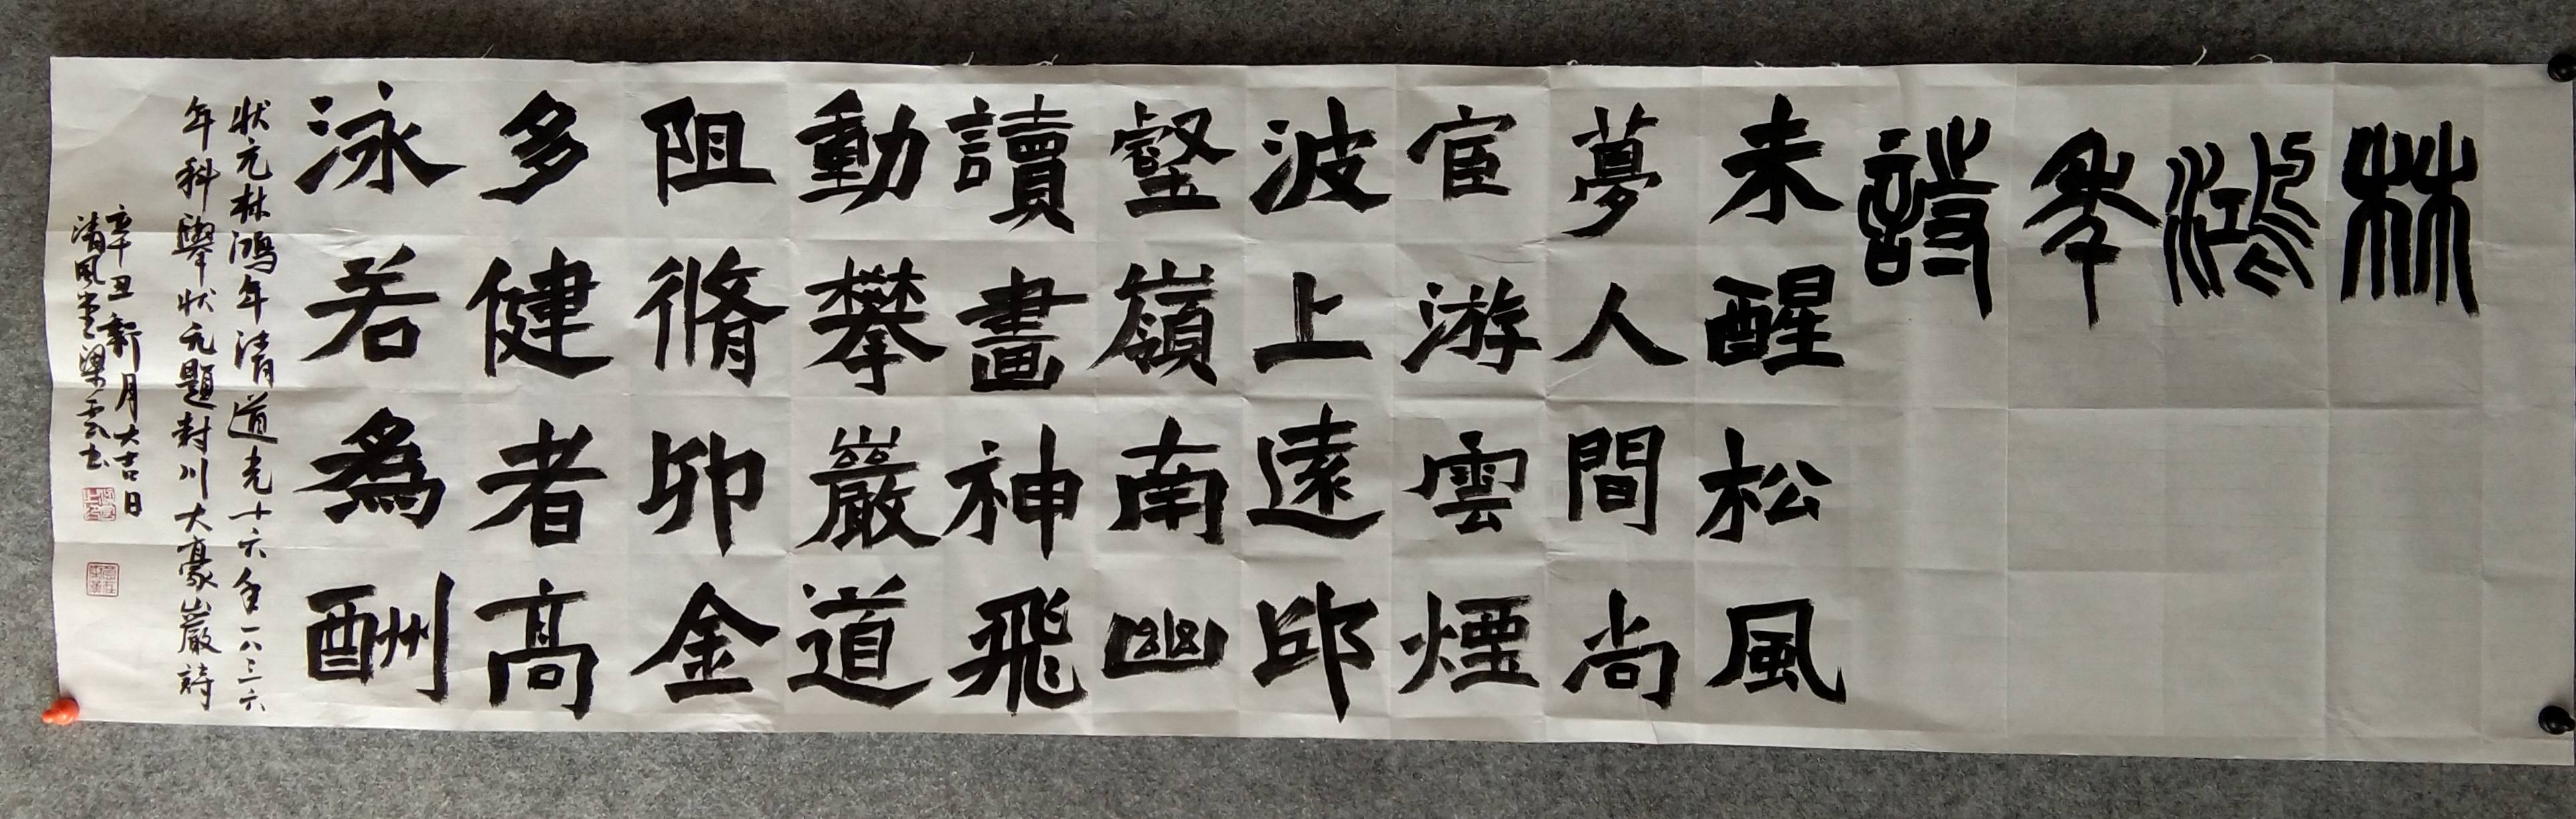 林鴻年詩
未醒松風
夢人間尚
宦游雲煙
波上遠邱
壑嶺南幽
讀畫神飛
動攀巖道
阻脩卯金
多健者高
泳若為酬
狀元林鴻年清道光十六年一八三六
年科舉狀元題封川大豪巖詩
辛丑新月大吉日
清風堂梁雲书